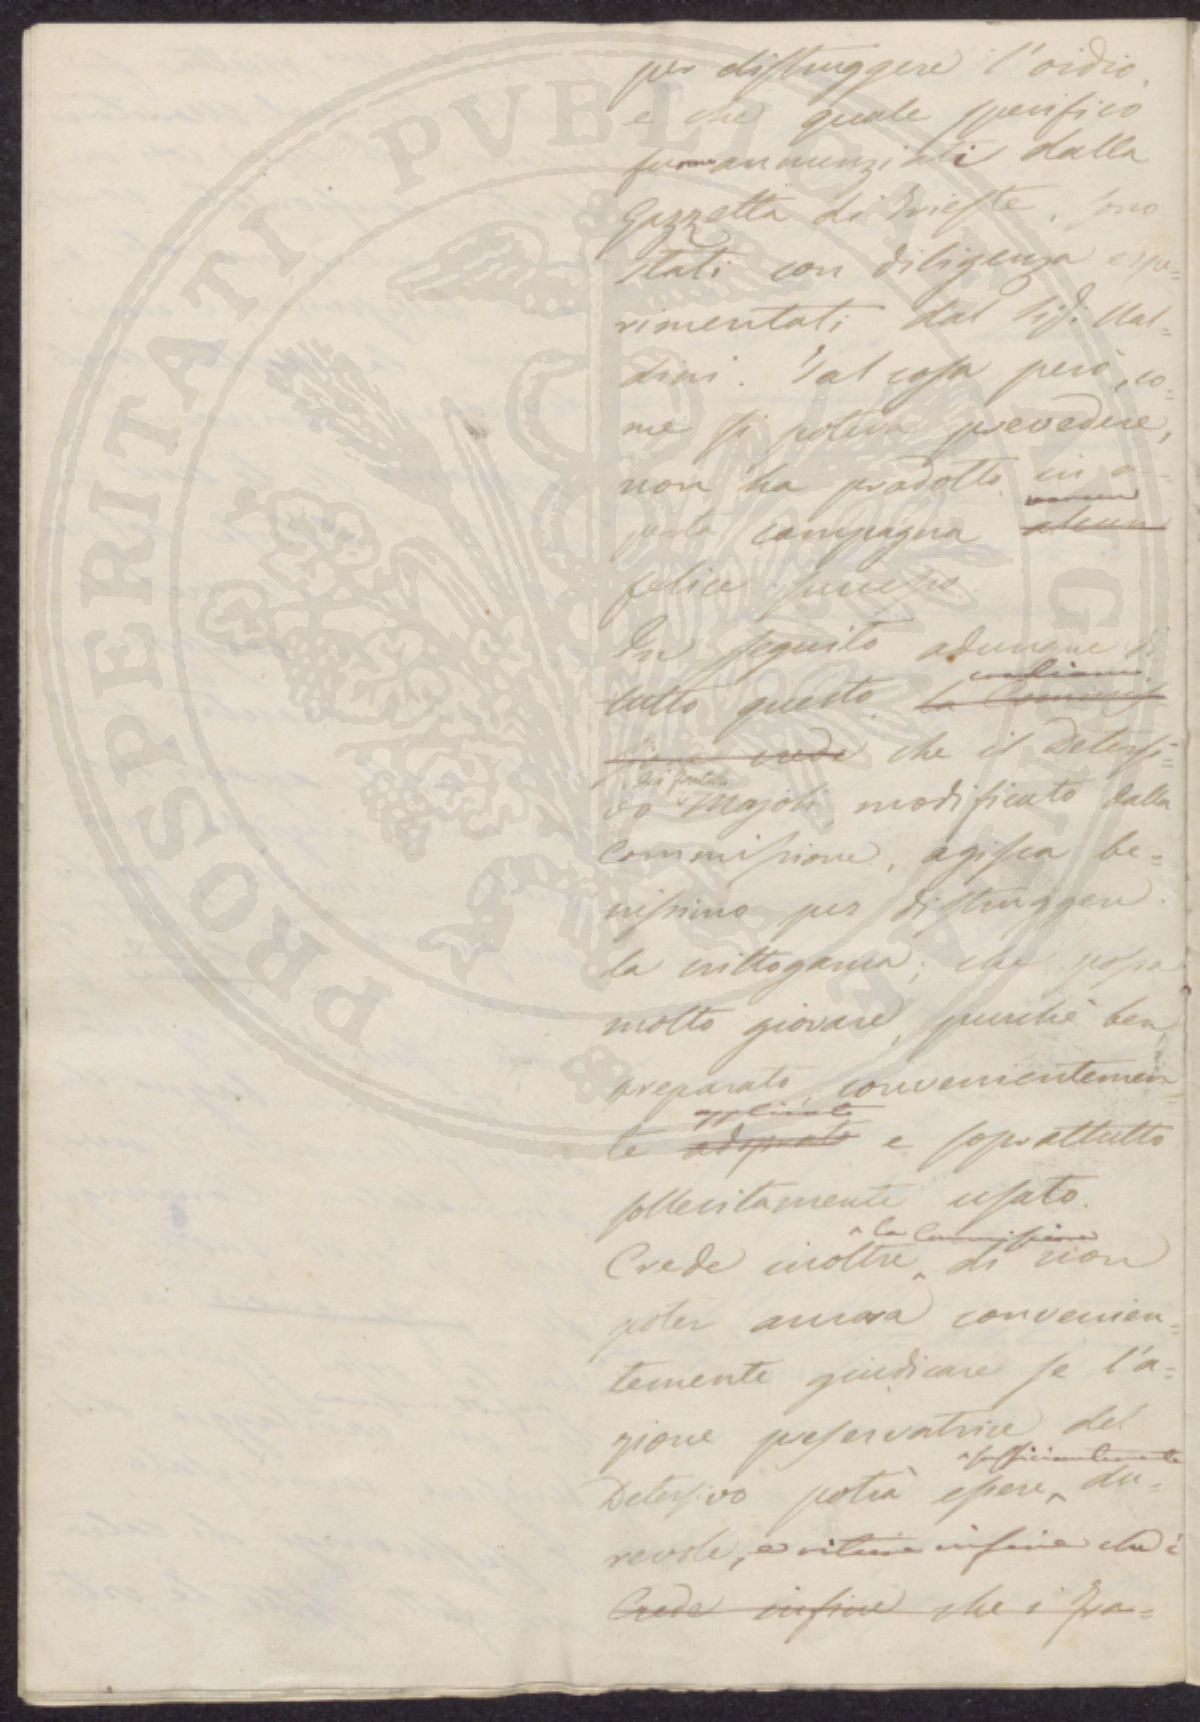 per distruggere l'oidio,
e che quale specifico
furono annunziati dalla
Gazzetta di Trieste, sono
stati con diligenza espe=
rimentati dal Sig. Mal=
dini. Tal cosa però, co=
me si poteva prevedere,
non ha prodotto in a=
perta campagna alcun
felice successo.
In seguito adunque di
crediamo
tutto questo la Commis
sione crede che il Detersi=
vo Majoli, modificato dalla
Commissione, agisca be=
nissimo per distruggere
la crittogama; che possa
molto giovare, purchè ben
preparato, convenientemen
applicato
te adoprato e soprattutto
sollecitamente usato.
^ la Commissione
Crede inoltre ^ di non
poter ancora convenien=
temente giudicare se l'a=
zione preservatrice del
^ sufficientemente
Detersivo potrà essere ^ du=
revole, e ritiene infine che i
Crede infine che i Fra=
PROSPERITATI PVBLICAE